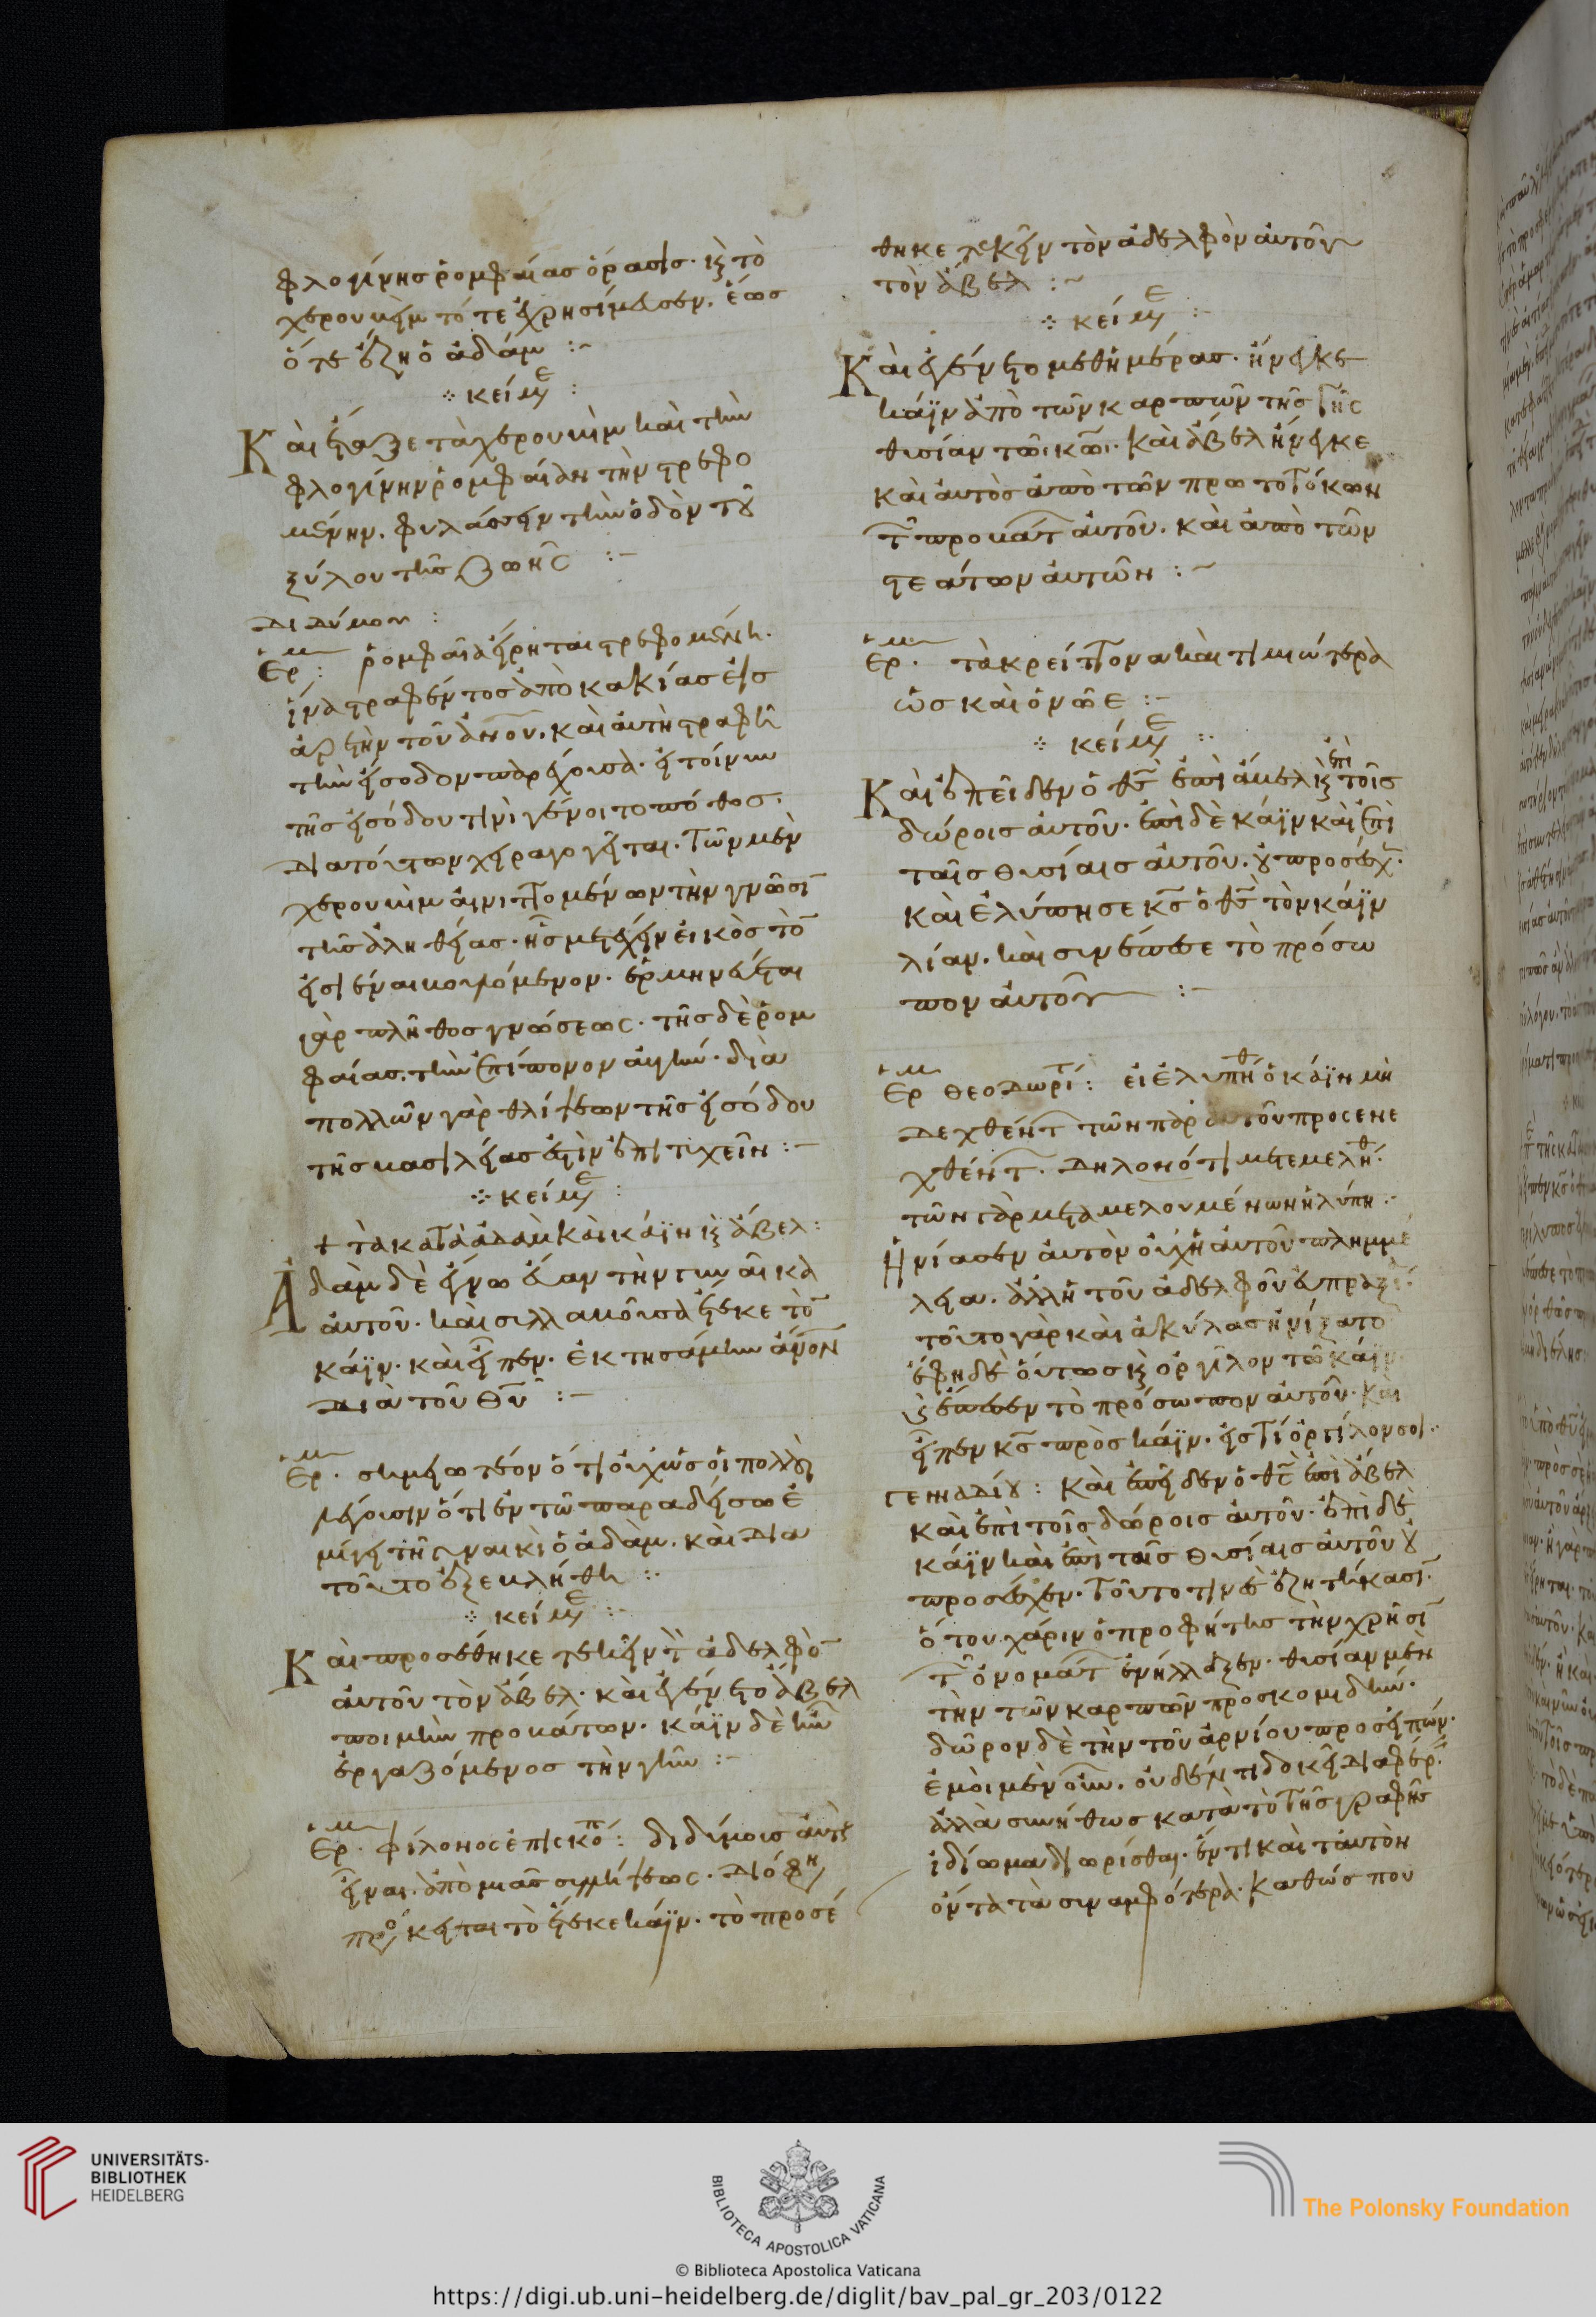 φλογίνης ρομφαίας όρασις. κ τὸ
χερουβὶμ τότε ἐχρησίμευσεν. ἕως
ὅτε ἔζη ὁ ἀδάμ :~
κείμε :
Καὶ ἔταξε τὰ χερουβὶμ καὶ τὴν
φλογίνην ῥομφαίαν τὴν στρεφο
μένην. φυλάσσειν τὴν ὁδὸν τοῦ
ξύλου τῆς ζωῆς :-
Διδύμου :
Ερμ : ῥομφαῖα εἴρηται στρεφομένη.
ἵνα στραφέντος ἀπὸ κακίας εἰς
ἀρετὴν τοῦ ἀνου. καὶ αὐτὴ στραφῆ
τὴν εἴσοδον παρέχουσα. εἰ τοίνυν
τῆς εἰσόδου τινὶ γένοιτο πόθος.
διὰ τούτων χειραγωγεῖται. τῶν μὲν
χερουβὶμ αἰνιττομένων τὴν γνῶσι
τῆς ἀληθείας. ἧς μετέχειν εἰκὸς τὸ
εἰσιέναι βουλόμενον. ἑρμηνεύεται
γὰρ πλῆθος γνώσεως. τῆς δὲ ῥομ
φαίας. τὴν ἐπίπονον ἀγωγήν. διὰ
πολλῶν γὰρ θλίψεων τῆς εἰσόδου
τῆς βασιλείας ἐστὶν ἐπιτυχεῖν :-
κείμε :
+ τὰ κατὰ ἀδὰμ καὶ κάϊν κ ἄβελ :
Ἀδὰμ δὲ ἔγνω εὔαν τὴν γυναῖκα
αὐτοῦ. καὶ συλλαβοῦσα ἔτεκε τὸ
κάϊν. καὶ εἶπεν. ἐκτησάμην ἄνον
διὰ τοῦ θυ :-
Ερμ. σημειωτέον ὅτι οὐχ ὡς οἱ πολλοὶ
λέγουσιν ὅτι ἐν τῶ παραδείσω ἐ
μίγη τῆ γυναικὶ ὁ ἀδὰμ. καὶ δια
τοῦτο ἐξεβλήθη :-
κείμε :-
Καὶ προσέθηκε τεκεῖν τὸ ἀδελφὸ
αὐτοῦ τὸν ἄβελ. καὶ ἐγένετο ἄβελ
ποιμὴν προβάτων. κάϊν δὲ ἦν
ἐργαζόμενος τὴν γῆν :-
Ερμ. φίλονος ἐπισκοπ : διδύμους αὐτοὺς
εἶναι. ἀπὸ μιᾶς συλλήψεως. διό φη
πρόκειται τὸ ἔτεκε κάϊν. τὸ προσέ
θηκε τεκεῖν τὸν ἀδελφὸν αὐτοῦ
τὸν ἄβελ :~
κείμε :-
Καὶ ἐγένετο μεθ ἡμέρας. ἤνεγκε
κάϊν ἀπὸ τῶν καρπῶν τῆς γῆς
θυσίαν τῶ κω. καὶ ἄβελ ἤνεγκε
καὶ αὐτὸς ἀπὸ τῶν πρωτοτόκων
τ προβατ αὐτοῦ. καὶ ἀπὸ τῶν
στεάτων αὐτῶν :~
Ερμ. τὰ κρείττονα καὶ τιμιώτερα
ὡς καὶ ὁ νῶε :-
κείμε :-
Καὶ ἐπεῖδεν ὁ θς ἐπὶ ἄβελ κ ἐπὶ τοῖς
δώροις αὐτοῦ. ἐπὶ δὲ κάϊν καὶ ἐπὶ
ταῖς θυσίαις αὐτοῦ. οὐ προσέσχ.
καὶ ἐλύπησε κς ὁ θς τὸν κάϊν
λίαν. καὶ συνέπεσε τὸ πρόσω
πον αὐτοῦ :-
Ερμ Θεοδωρίτ : εἰ ἐλυπήθ ὁ κάϊν μὴ
δεχθέντ τῶν παρ αὐτοῦ προσενε
χθέντ. δηλονότι μετεμελήθ.
τῶν γὰρ μεταμελουμένων ἡ λύπη.
Ἠνίασεν αὐτὸν οὐχ ἡ αὐτοῦ πλημμέ
λεια. ἀλλ ἡ τοῦ ἀδελφοῦ εὐπραξί.
τοῦτο γὰρ καὶ ἀκύλας ἠνίξατο
ἔφη δὲ οὕτως κ ὀργίλον τῶ κάϊν
κ ἔπεσεν τὸ πρόσωπον αὐτοῦ. καὶ
εἶπεν κς πρὸς κάϊν. εἰς τί ὀργίλον σοι.
Γενναδίου : Καὶ ἐπεῖδεν ὁ θς ἐπὶ ἄβελ
καὶ ἐπὶ τοῖς δώροις αὐτοῦ. ἐπὶ δὲ
κάϊν καὶ ἐπὶ ταῖς θυσίαις αὐτοῦ οὐ
προσέσχεν. τοῦτο τινὲς ἐζητήκασι.
ὅτου χάριν ὁ προφήτης τὴν χρῆσι
τ ὀνοματ ἐνήλλαξεν. θυσίαν μὲν
τὴν τῶν καρπῶν προσκομιδήν.
δῶρον δὲ τὴν τοῦ ἀρνίου προσειπών.
ἐμοὶ μὲν οὖν. οὐδέν τι δοκεῖ διαφέρ.
ἀλλὰ συνήθως κατὰ τὸ τῆς γραφῆς
ἰδίωμα διωρίσθαι. ἕν τι καὶ ταυτὸν
ὄντα τὰ συναμφότερα. καθώς που
UNIVERSITÄTS-
BIBLIOTHEK
HEIDELBERG
BIBLIOTECA APOSTOLICA VATICANA
The Polonsky Foundation
© Biblioteca Apostolica Vaticana
https://digi.ub.uni-heidelberg.de/diglit/bav_pal_gr_203/0122